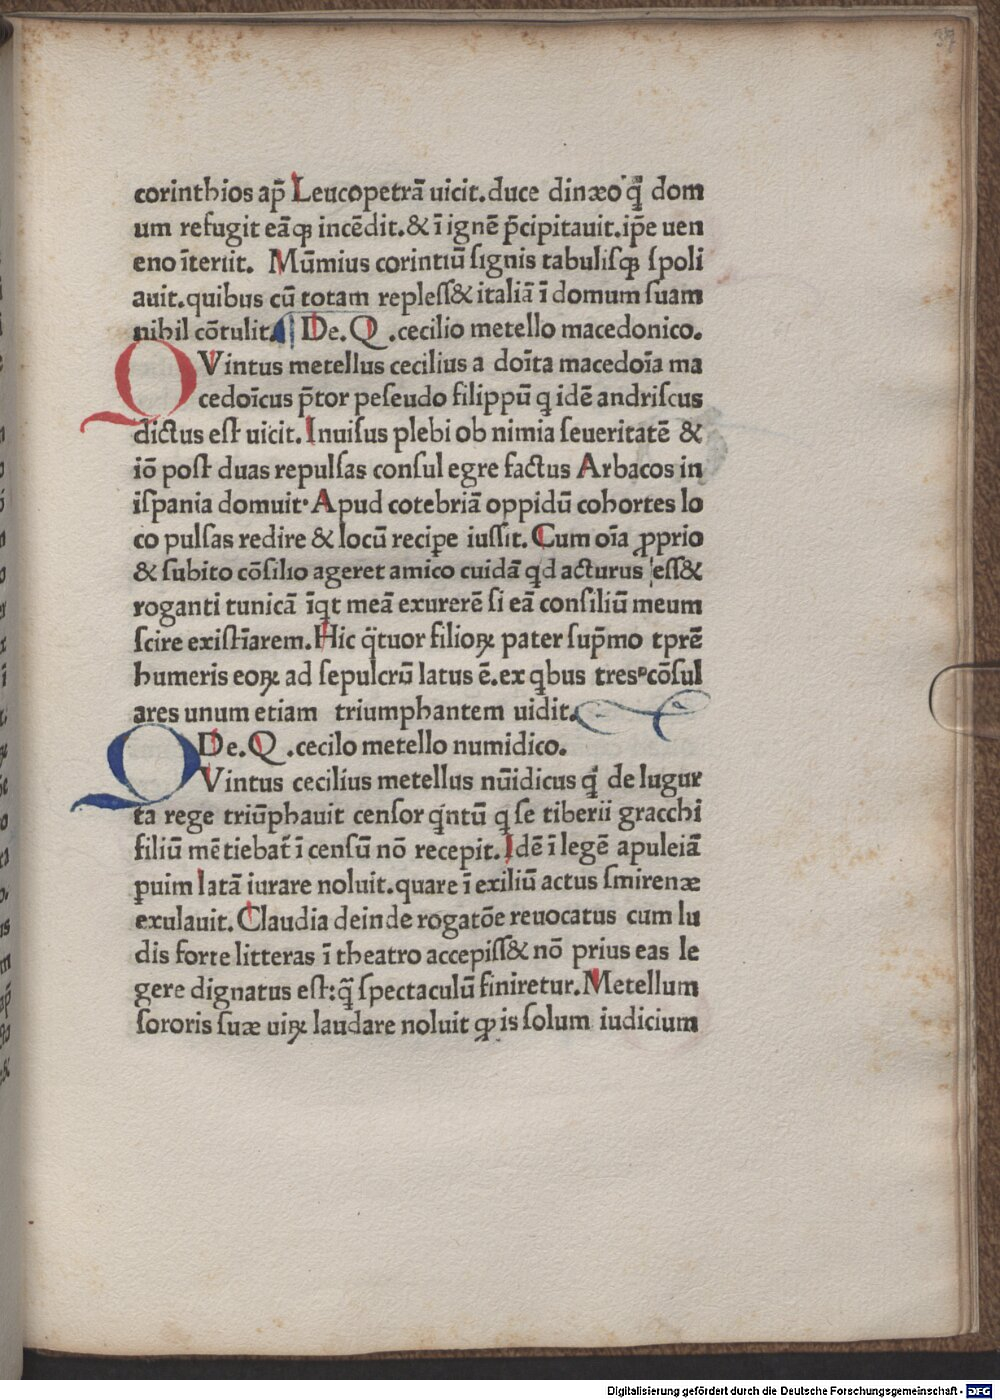 37
corinthios ap̄ Leucopetrā uicit. duce dinæo q̄ dom
um refugit eāꝙ incēdit. & ī ignē p̄cipitauit. ip̄e uen
eno īteriit. Mūmius corintiū signis tabulisꝙ spoli
auit. quibus cū totam repless& italiā ī domum suam
nihil cōtulit. De. Q. cecilio metello macedonico.
QVintus metellus cecilius a doīta macedoīa ma
cedoīcus p̄tor peseudo filippū q idē andriscus
dictus est uicit. Inuisus plebi ob nimia seueritatē &
iō post duas repulsas consul egre factus Arbacos in
ispania domuit. Apud cotebriā oppidū cohortes lo
co pulsas redire & locū recipe iussit. Cum oīa ꝓprio
& subito cōsilio ageret amico cuidā qd acturus ess&
roganti tunicā īqt meā exurerē si eā consiliū meum
scire existīarem. Hic q̄tuor filioꝝ pater sup̄mo tprē
humeris eoꝝ ad sepulcrū latus ē. ex qbus tres cōsul
ares unum etiam triumphantem uidit.
De. Q. cecilo metello numidico.
QVintus cecilius metellus nūidicus q̄ de Iugur
ta rege triūphauit censor qntū q se tiberii gracchi
filiū mētiebat̄ ī censū nō recepit. Idē ī legē apuleiā
ꝑuim latā iurare noluit. quare ī exiliū actus smirenæ
exulauit. Claudia deinde rogatōe reuocatus cum lu
dis forte litteras ī theatro accepiss& nō prius eas le
gere dignatus est: q̄ spectaculū finiretur. Metellum
sororis suæ uiꝝ laudare noluit ꝙ is solum iudicium
Digitalisierung gefördert durch die Deutsche Forschungsgemeinschaft - DFG